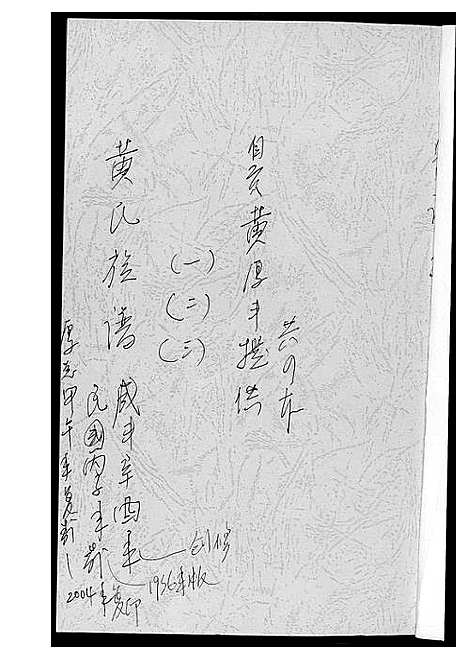 自贡黄厚丰提供
共四本
(一)
(二)
(三)
黄氏族谱
咸丰辛酉年
创修
民國丙子年
1936年版
厚志甲午年复制
2004年复印